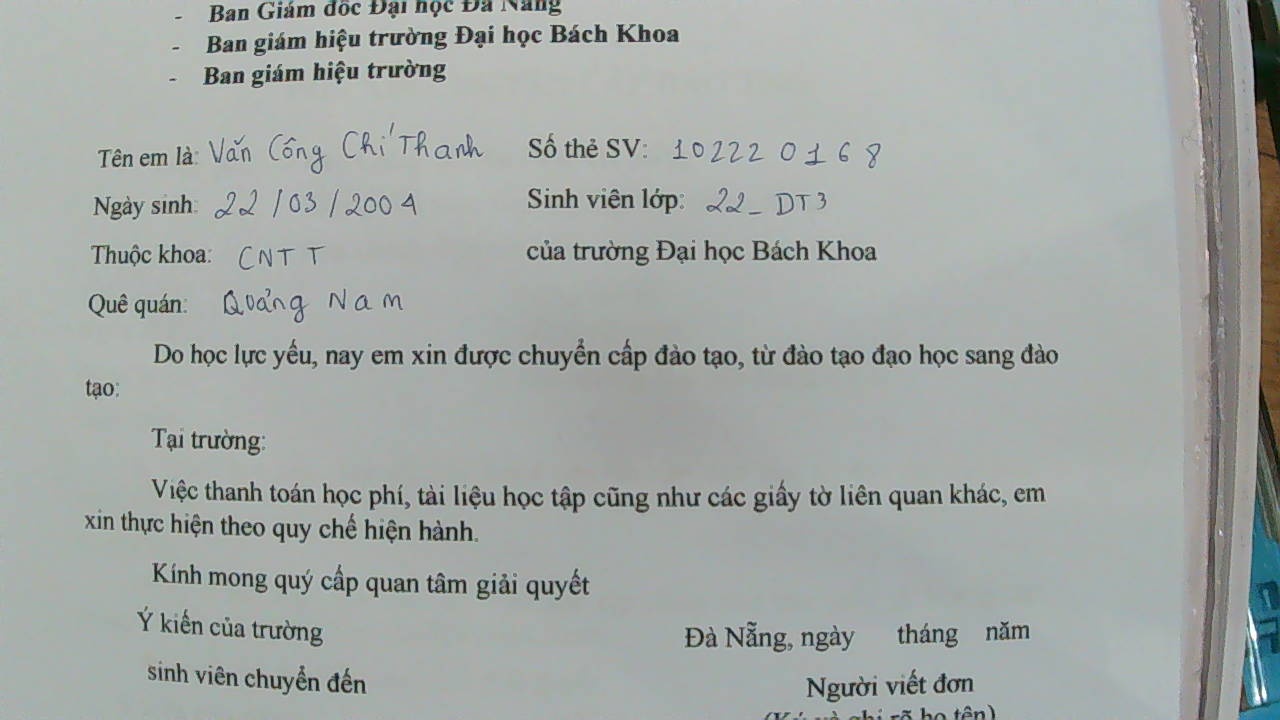 - Ban Giám đốc Đại học Đà Nẵng
- Ban giám hiệu trường Đại học Bách Khoa
- Ban giám hiệu trường
Tên em là: Văn Công Chí Thanh Số thẻ SV: 102220168
Ngày sinh: 22/03/2004 Sinh viên lớp: 22_DT3
Thuộc khoa: CNTT của trường Đại học Bách Khoa
Quê quán: Quảng Nam
Do học lực yếu, nay em xin được chuyển cấp đào tạo, từ đào tạo đạo học sang đào
tạo:
Tại trường:
Việc thanh toán học phí, tài liệu học tập cũng như các giấy tờ liên quan khác, em
xin thực hiện theo quy chế hiện hành.
Kính mong quý cấp quan tâm giải quyết
Ý kiến của trường
sinh viên chuyển đến
Đà Nẵng, ngày tháng năm
Người viết đơn
(Ký và ghi rõ họ tên)